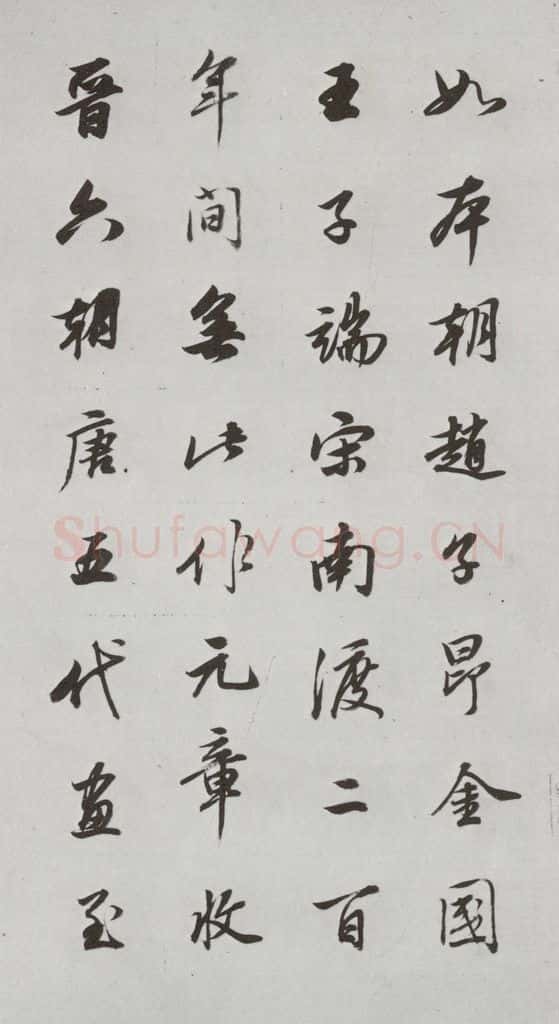 如本朝趙子昂金國
王子端宋南渡二百
年間無此作元章收
晉六朝唐五代畫至
Shufawang.CN